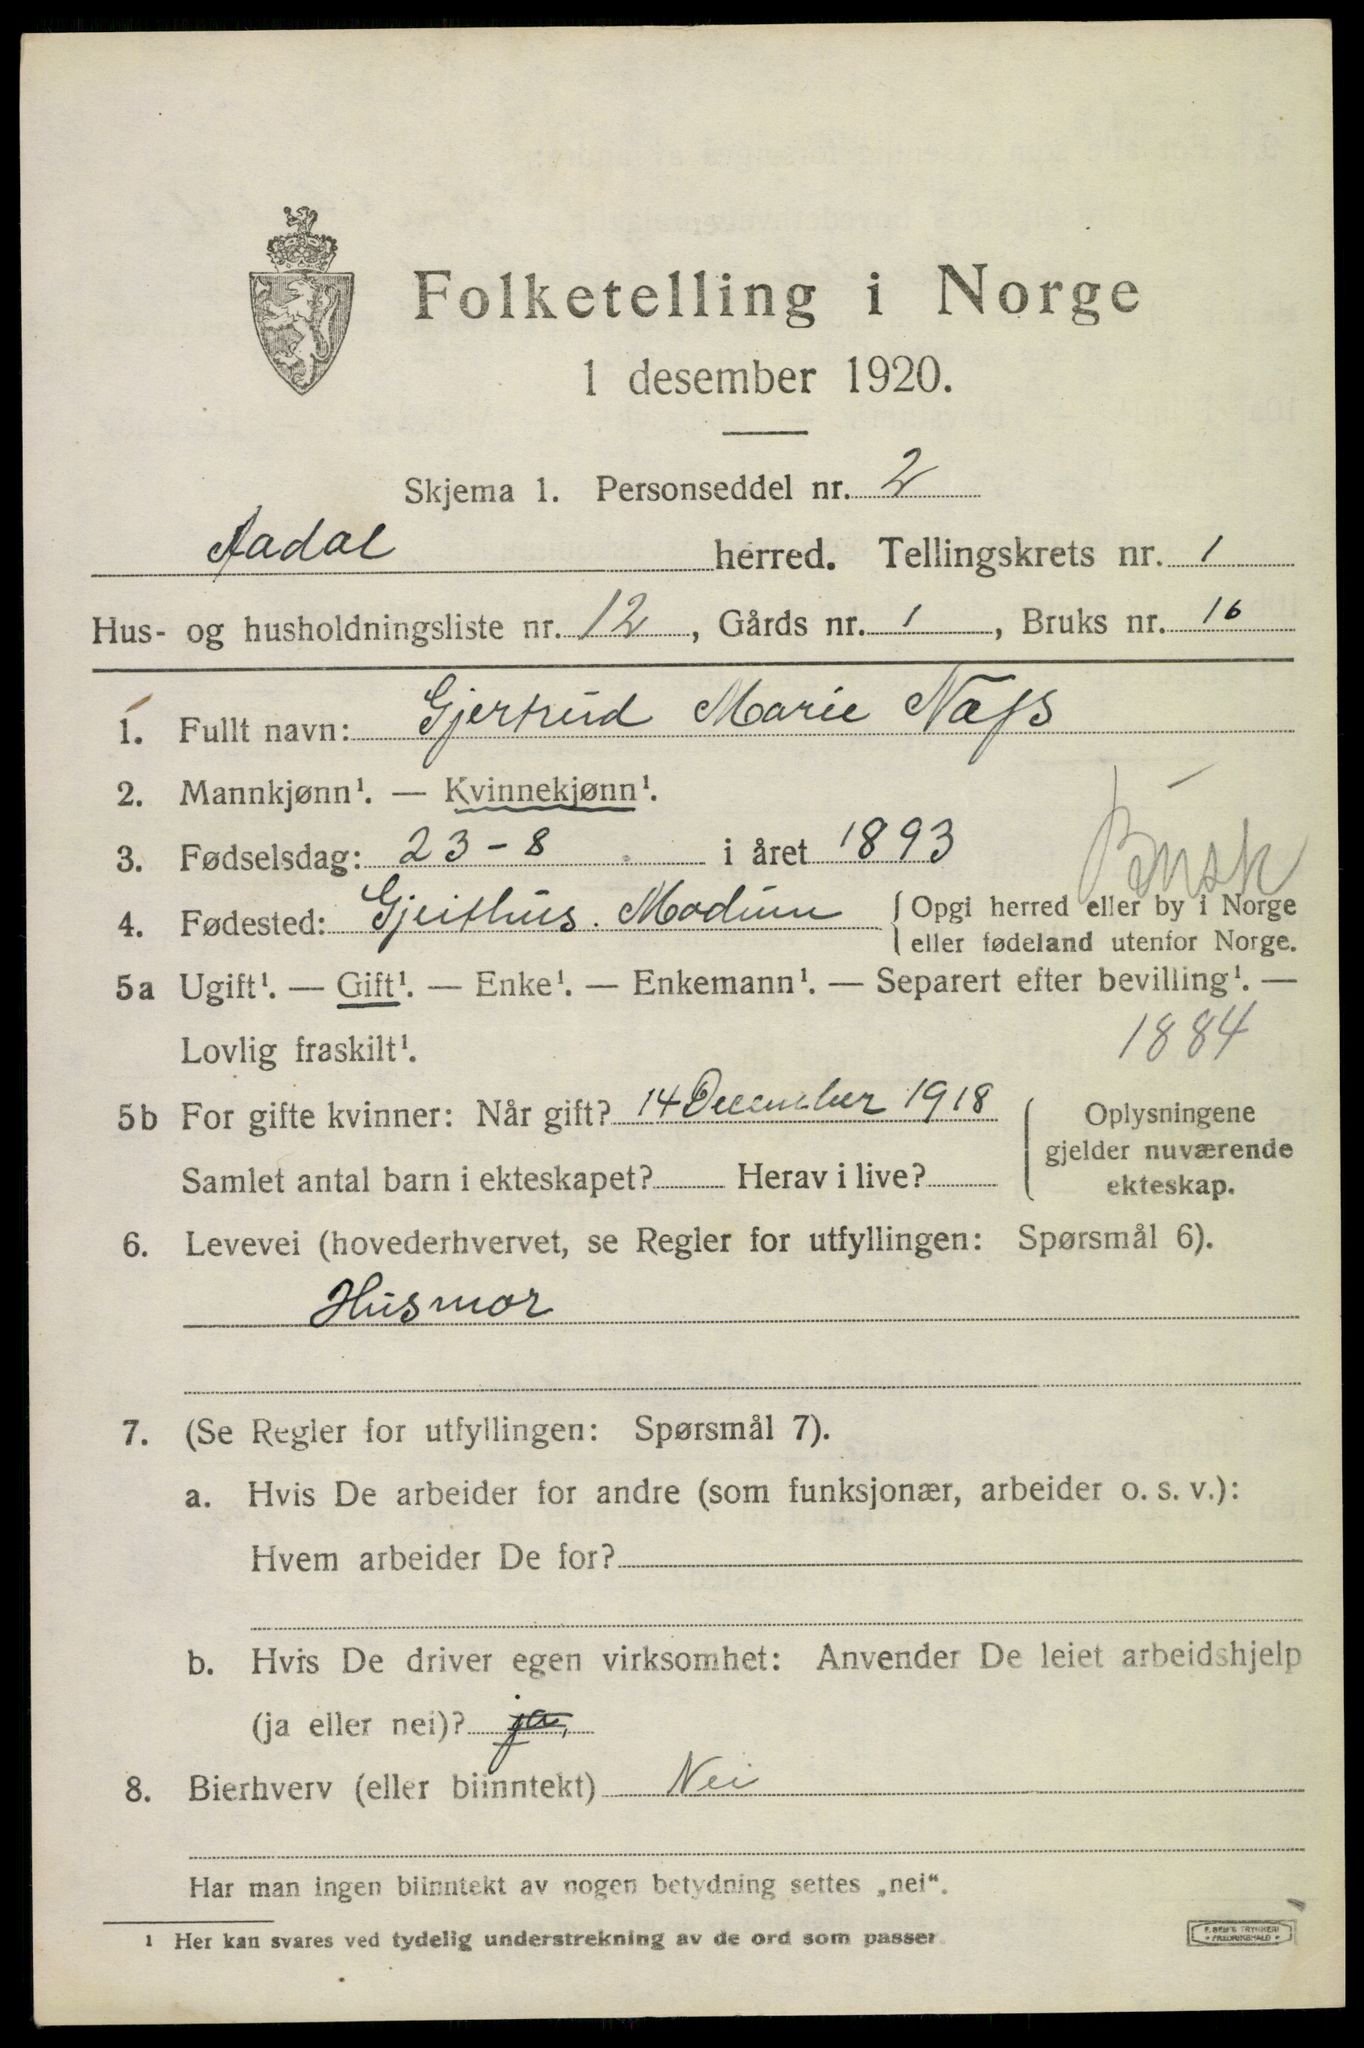 Folketelling i Norge
1 desember 1920.
Skjema 1. Personseddel nr. 2
Aadal herred. Tellingskrets nr. 1
Hus- og husholdningsliste nr. 12, Gårds nr. 1, Bruks nr. 16
1. Fullt navn: Gjertrud Marie Næss
2. Mannkjønn¹. — Kvinnekjønn¹.
3. Fødselsdag: 23-8 i året 1893
Busk
4. Fødested: Gjeithus. Modum { Opgi herred eller by i Norge
eller fødeland utenfor Norge.
5a Ugift¹. — Gift¹. — Enke¹. — Enkemann¹. — Separert efter bevilling¹. —
Lovlig fraskilt¹. 1884
5b For gifte kvinner: Når gift? 14 December 1918 { Oplysningene
gjelder nuværende
Samlet antal barn i ekteskapet? Herav i live? ekteskap.
6. Levevei (hovederhvervet, se Regler for utfyllingen: Spørsmål 6).
Husmor
7. (Se Regler for utfyllingen: Spørsmål 7).
a. Hvis De arbeider for andre (som funksjonær, arbeider o. s. v.):
Hvem arbeider De for?
b. Hvis De driver egen virksomhet: Anvender De leiet arbeidshjelp
(ja eller nei)? ja,
8. Bierhverv (eller biinntekt) Nei
Har man ingen biinntekt av nogen betydning settes „nei“.
¹ Her kan svares ved tydelig understrekning av de ord som passer.
E. SEM'S TRYKKERI
FREDRIKSHALD